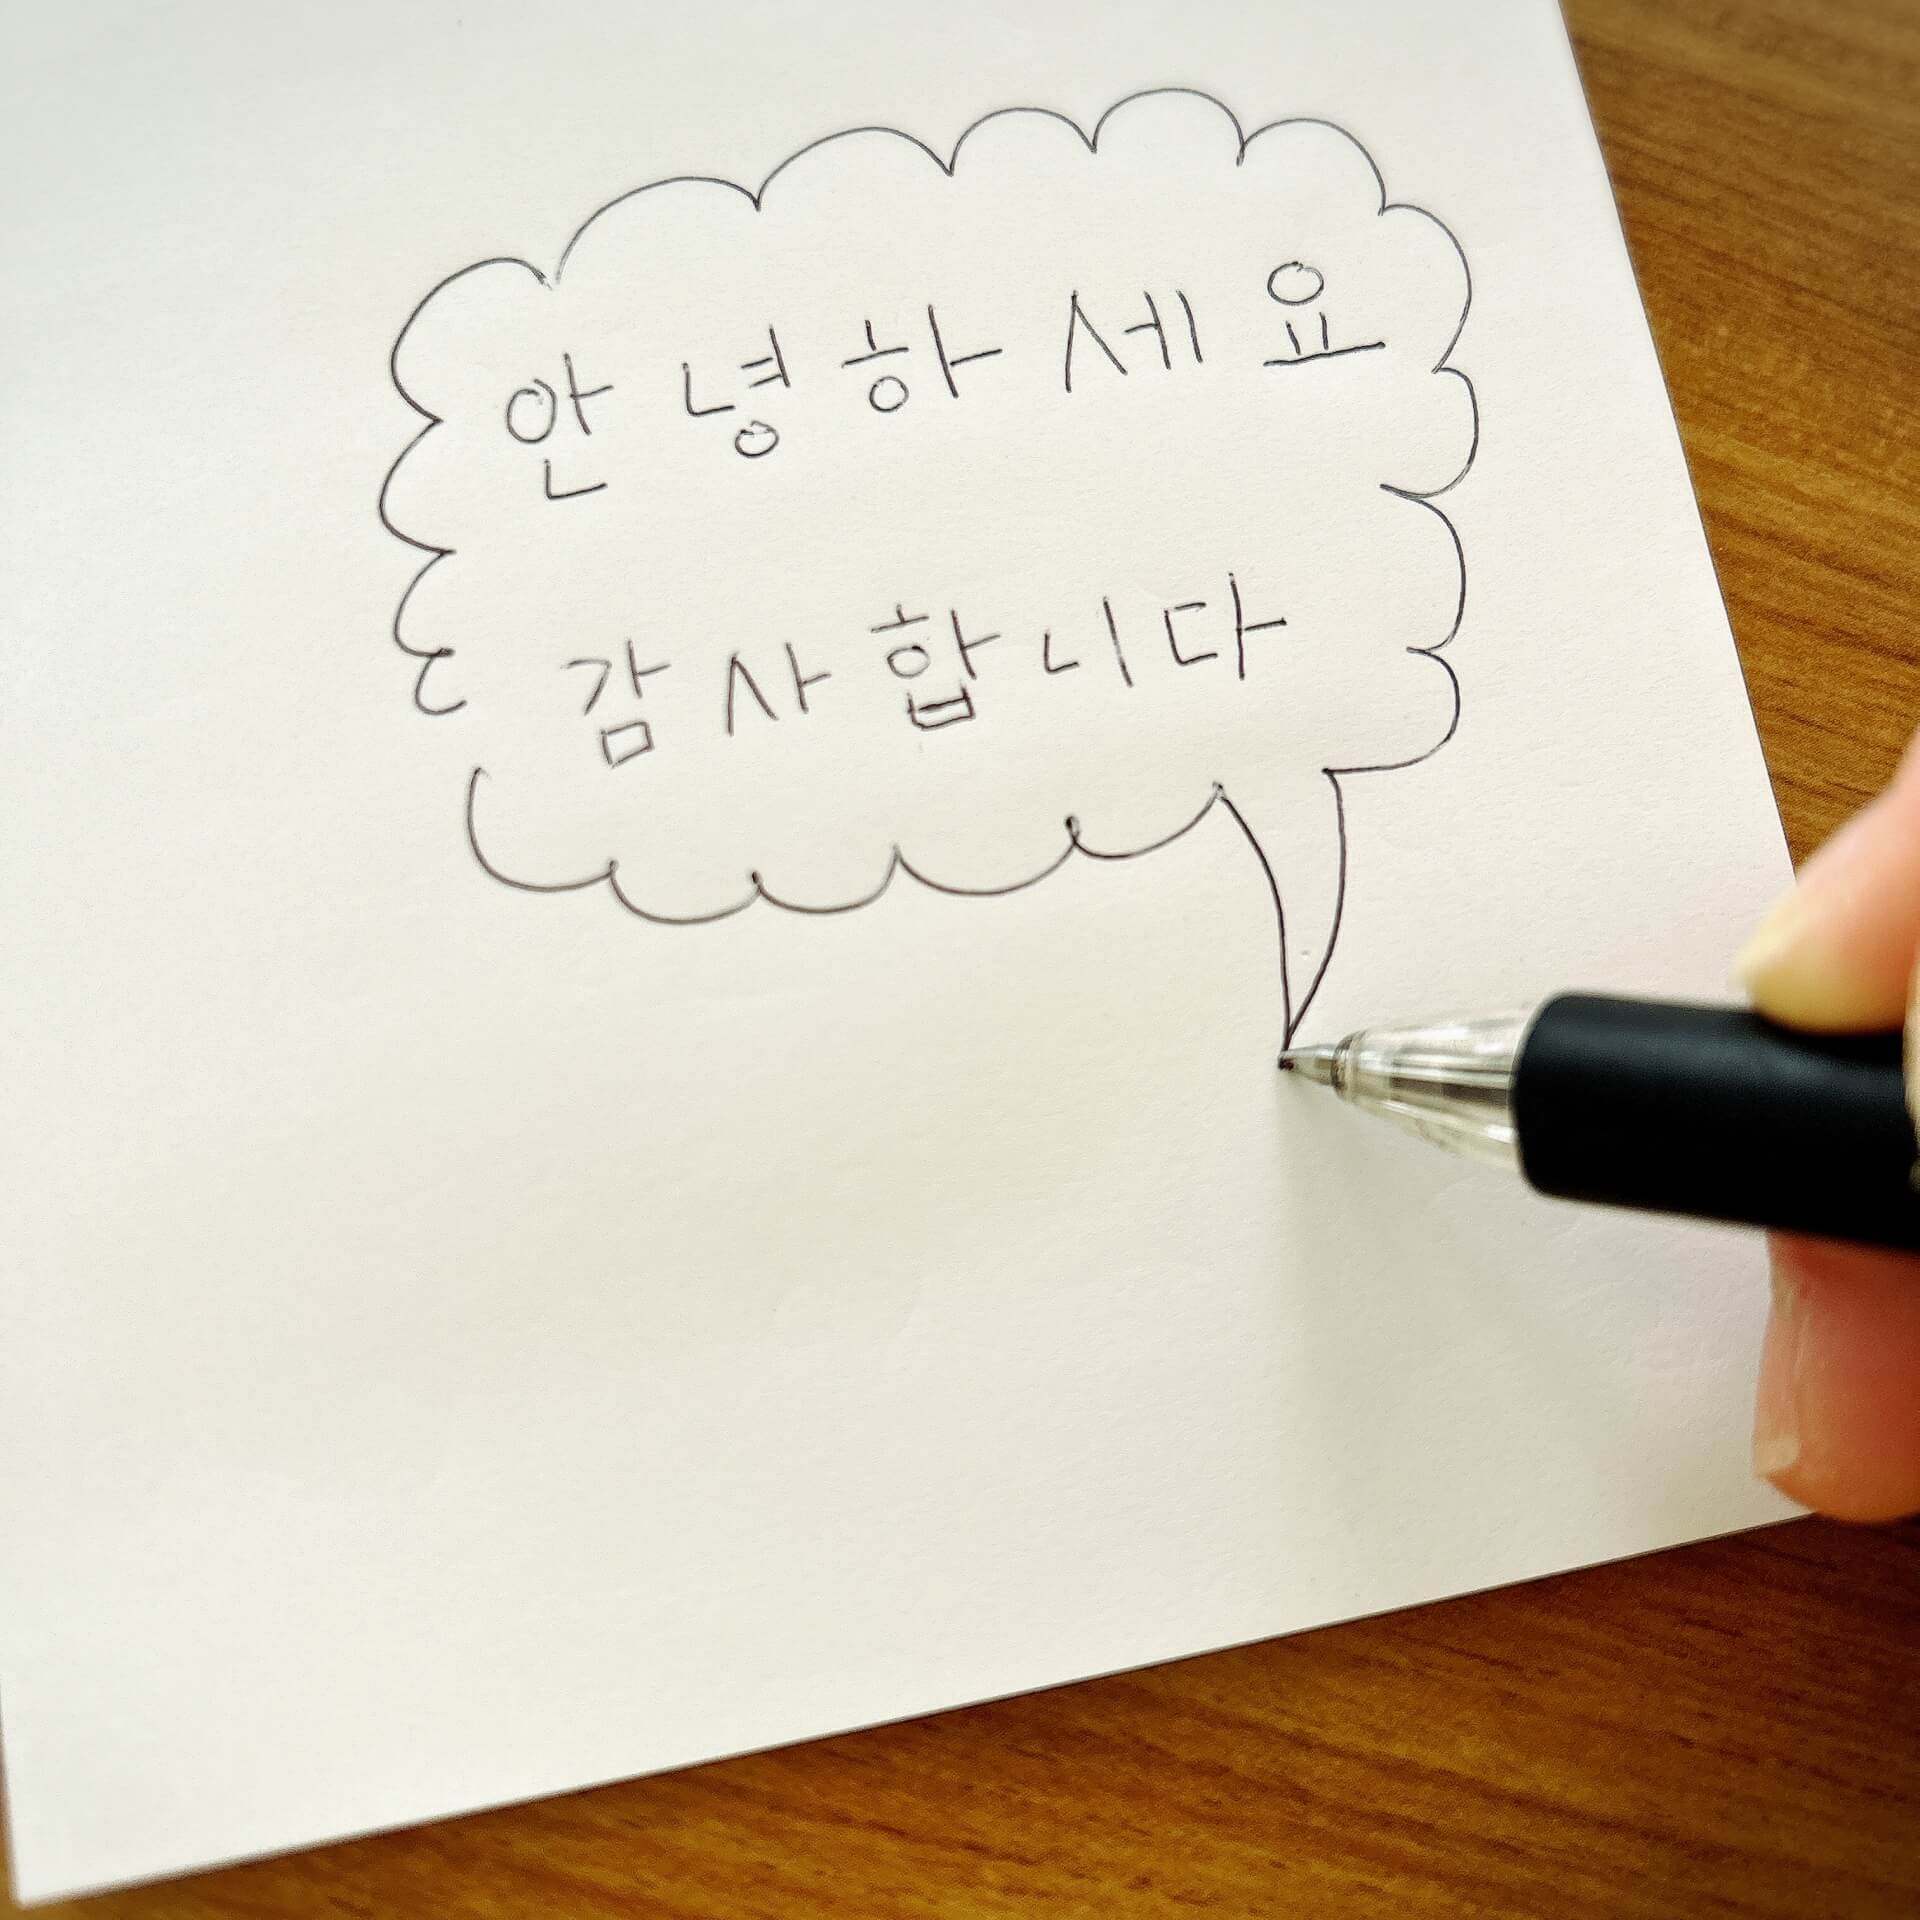 안녕하세요
감사합니다